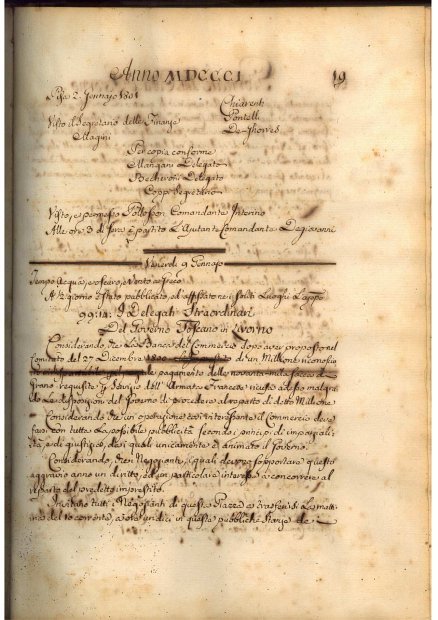 Anno MDCCCI 19
Pisa 2. Gennajo 1801
Chiarenti
Visto il Segretario delle Finanze Pontelli
Magini De Ghores
Per copia conforme
Mangani Delegato
Becheroni Delegato
Coppi Segretario
Visto, e permesso Comandante Interino
Alle ore 3 di sera è partito l'Ajutante Comandante Degiovanni
Venerdì 9 Gennajo
Tempo Acqua, e oscuro, e Vento a
A giorno è stato pubblicato, ed affisso nei soliti Luoghi
I Delegati Straordinari
Del Governo Toscano in Livorno
Considerando, che la Banca del Commercio dopo aver proposto nel
Comitato del 27 Decembre 1800 di un Millione
pagamento delle novanta mila sacca di
Grano requisite in servizio dell'Armata Francese
do la disposizione del Governo di procedere al reparto di detto Millione
Considerando che un operazione così interessante il Commercio deve
farsi con tutta la possibile pubblicità secondo i principj di imparziali-
tà, e di giustizia, dai quali unicamente è animato il Governo.
Considerando, che i Negozianti, i quali devono sopportare questo
aggravio anno un diritto, ed un particolare interesse a concorrere al
reparto del predetto imprestito.
Invitano tutti i Negozianti di questa Piazza a trasferirsi la mat-
tina del 10 corrente, a ore undici in queste pubbliche Stanze